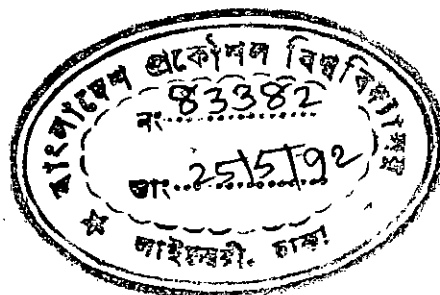 বাংলাদেশ প্রকৌশল বিশ্ববিদ্যালয়
নং 83382
তাং 25/5/92
লাইব্রেরী, ঢাকা